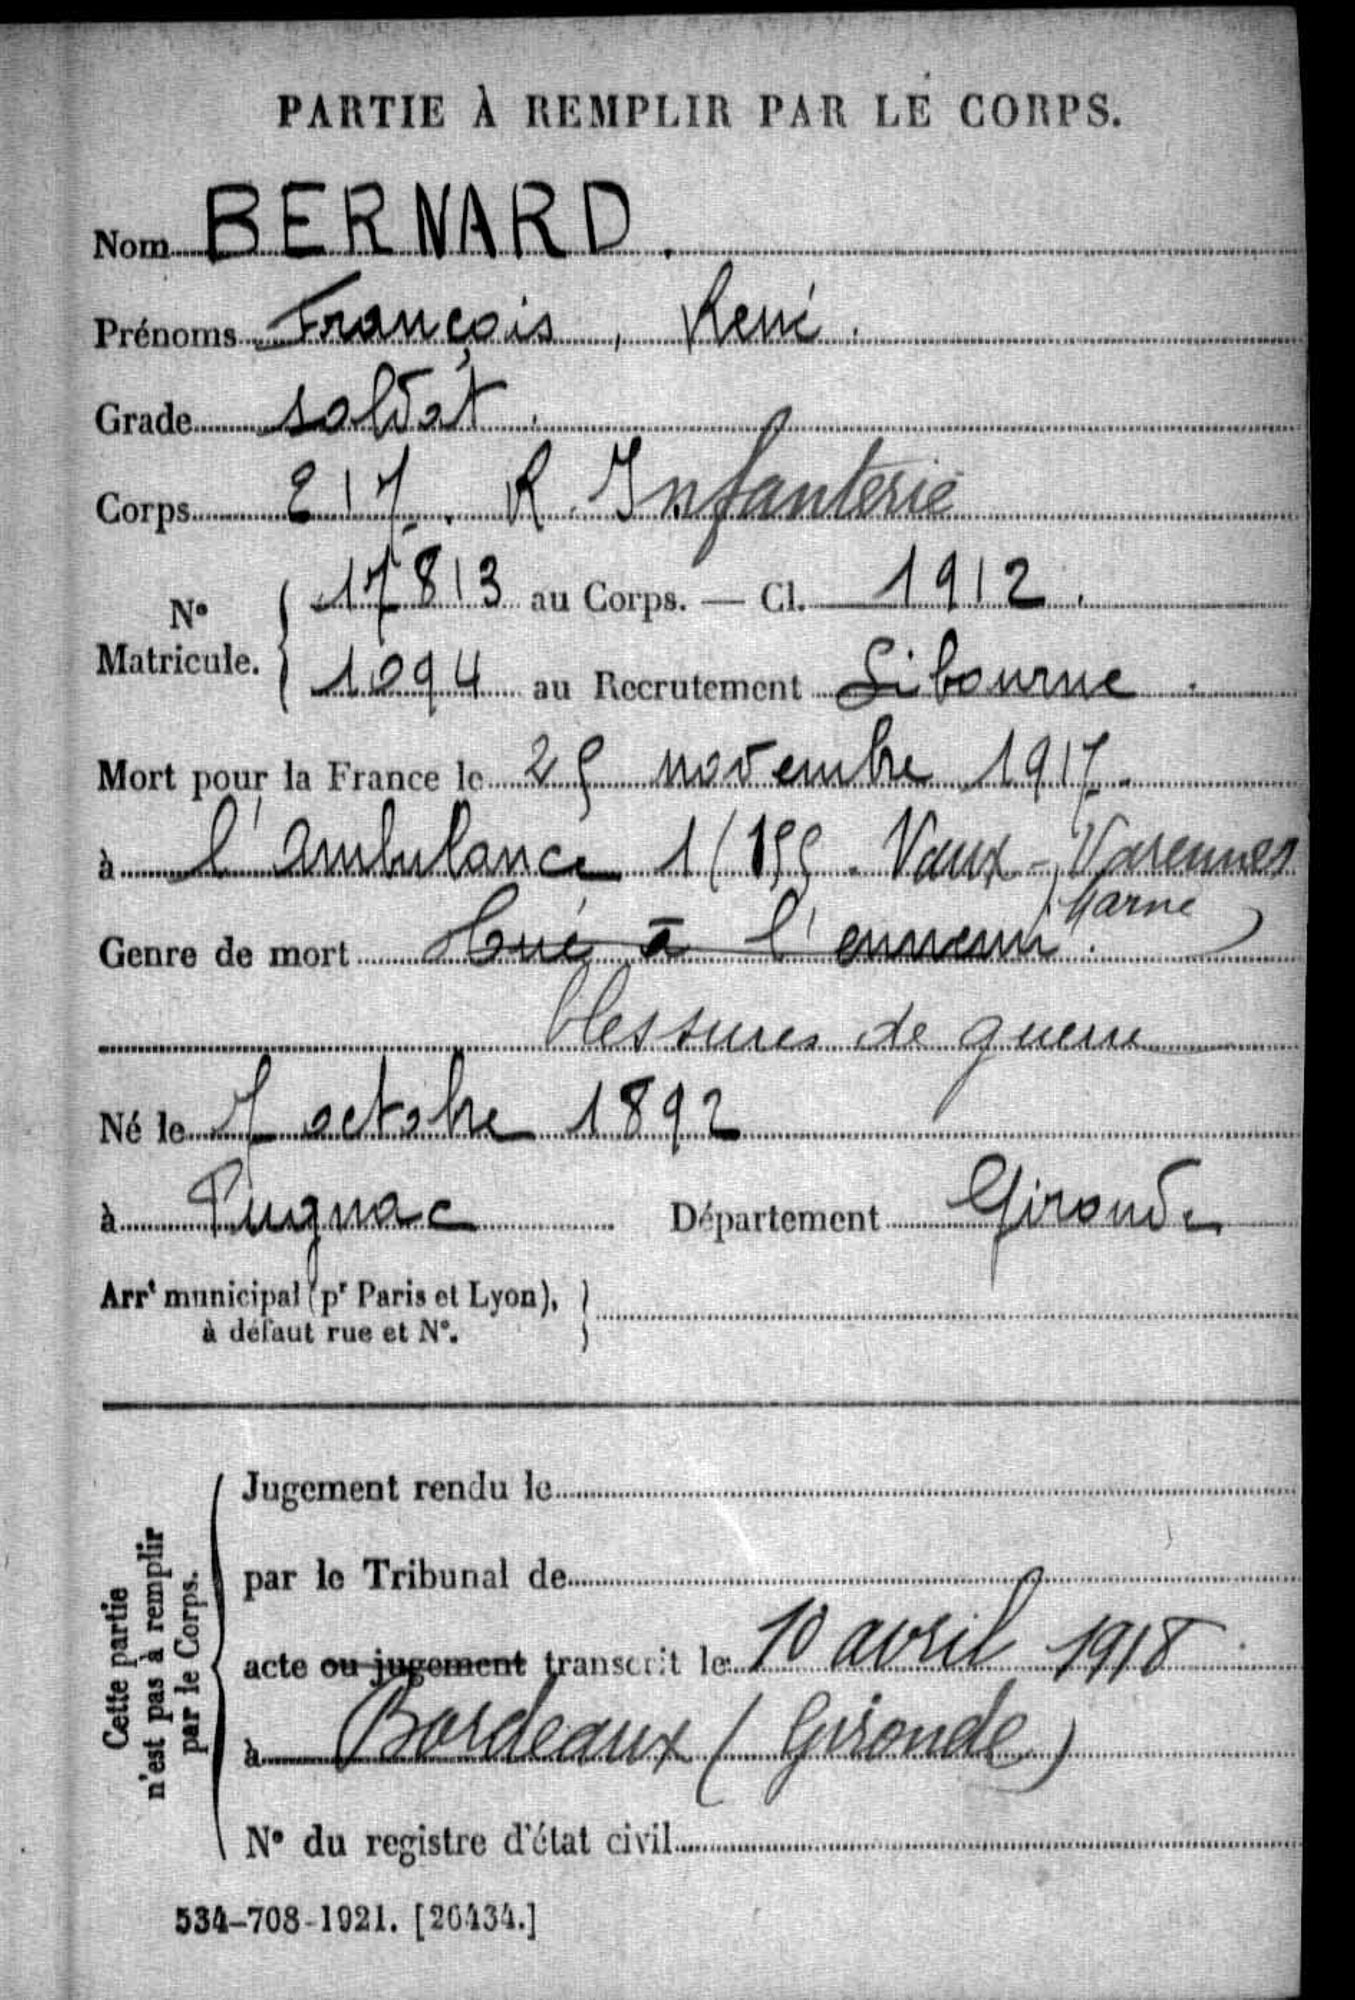 PARTIE À REMPLIR PAR LE CORPS.
Nom BERNARD.
Prénoms François, René.
Grade soldat.
Corps 217. R. Infanterie
N° Matricule. 17813 au Corps. — Cl. 1912.
1094 au Recrutement Libourne.
Mort pour la France le 25 novembre 1917.
à l'ambulance 1/155. Vaux-Varennes
Marne
Genre de mort tué à l'ennemi.
blessures de guerre
Né le 7 octobre 1892
à Pugnac Département Gironde
Arrt municipal (pr Paris et Lyon),
à défaut rue et N°.
Cette partie
n'est pas à remplir
par le Corps.
Jugement rendu le
par le Tribunal de
acte ou jugement transcrit le 10 avril 1918.
à Bordeaux (Gironde)
N° du registre d'état civil
534-708-1921. [26434.]